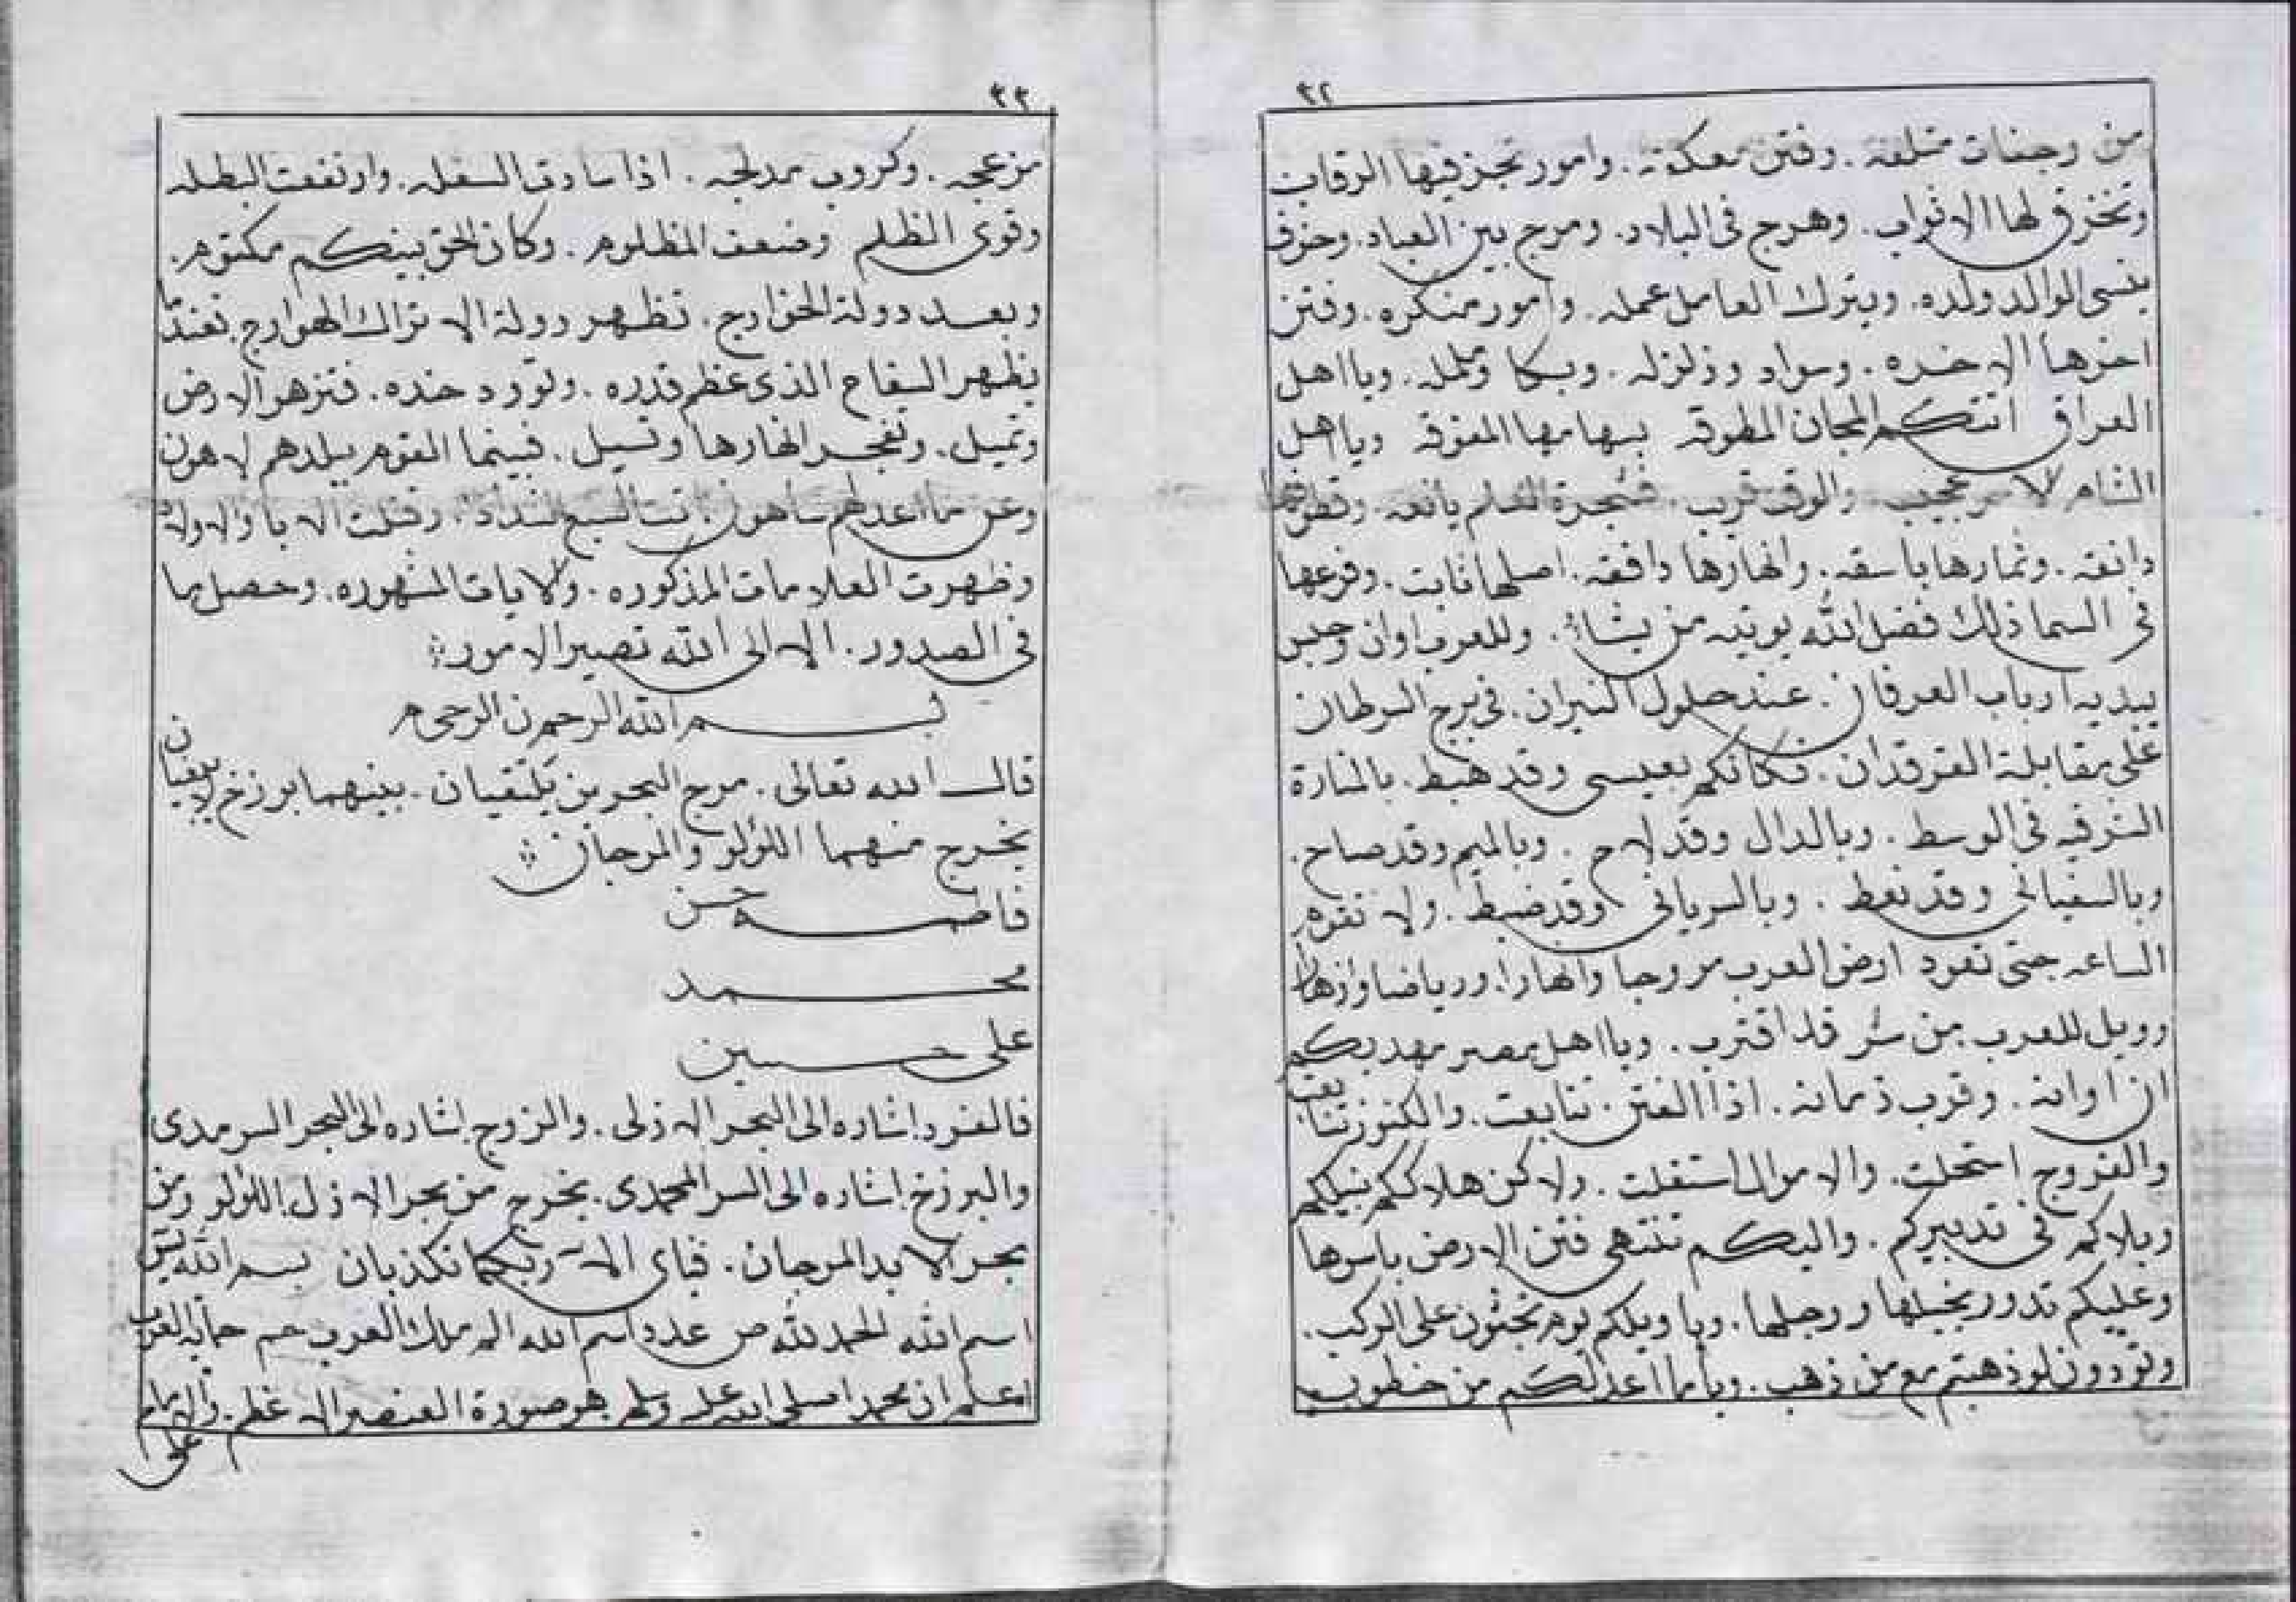 ٣٢
من رجفات متلفه. وفتن معكته. وامور تجز فيها الرقاب
وتخرق لها الاثواب. وهرج فى البلاد. ومرج بين العباد. وخوف
ينسى الوالد ولده. ويترك العامل عمله. وامور منكره. وفتن
اخرها الاخده. وسواد وزلزله. وبكا وململه. ويا اهل
العراق اتتكم المجان المطوقه بسهامها المفوقه ويا اهل
الشام لامر عجيب والوقت قريب. فشجرة الظلم يانعه. وقطوفها
دانقه. وثمارها باسقه. وانهارها دافقه. اصلها ثابت. وفرعها
فى السما ذلك فضل الله يوتيه من يشاء. وللعرب اوان وحين
يبديه ارباب العرفان. عند حلول النيران. فى برج السرطان
على مقابلة الفرقدان. فكانكم بعيسى وقد هبط. بالمنارة
الشرقيه فى الوسط. وبالدال وقد لاح. وبالميم وقد صاح.
وبالسفيانى وقد نعط. وبالسريانى وقد ضبط. ولا تقوم
الساعه حتى تعود ارض العرب مروجا وانهارا. ورياضا وازهارا
وويل للعرب من شر قد اقترب. ويا اهل مصر مهديكم
ان اوانه. وقرب زمانه. اذا الفتن تتابعت. والكنوز تتابعت
والفروج استحلت. والاموال استغلت. ولاكن هلاككم بنيلكم
وبلاكم فى تدبيركم. واليكم تنتهى فتن الارض باسرها
وعليكم تدور بخيلها ورجلها. ويا ويلكم يوم تجثون على الركب.
وتودون لو ذهبتم مع من ذهب. ويا ما اعد لكم من خطوب
٣٣
مزعجه. وكروب مدلجه. اذا سادت السفله. وارتفعت البطله
وقوى الظلم وضعف المظلوم. وكان الحق بينكم مكتوم.
وبعد دولة الخوارج. تظهر دولة الاتراك الهوارج. فعندها
يظهر السفاح الذى عظم قدره. وتورد خده. فتزهر الارض
وتميل. وتفجر انهارها وتسيل. فبينما القوم ببلدهم لاهون
وعن ما اعد لهم ساهون. اتت السبع الشداد. وقتلت الابا والاولاد
وظهرت العلامات المذكوره. والايات المشهوره. وحصل ما
فى الصدور. الا الى الله تصير الامور
بسم الله الرحمن الرحيم
قال الله تعالى. مرج البحرين يلتقيان. بينهما برزخ لا يبغيان
يخرج منهما اللؤلؤ والمرجان
فاطمه حسن
محمد
على حسين
فالفرد اشاره الى البحر الازلى. والزوج اشاره الى البحر السرمدى
والبرزخ اشاره الى السر المحمدى. يخرج من بحر الازل اللؤلؤ ومن
بحر الابد المرجان. فباى الاء ربكما تكذبان بسم الله
اسم الله الحمد لله ص عدد اسم الله الم ملك العرب حم
اعلم ان محمدا صلى الله عليه وسلم هو صورة العنصر الاعظم. والامام
على